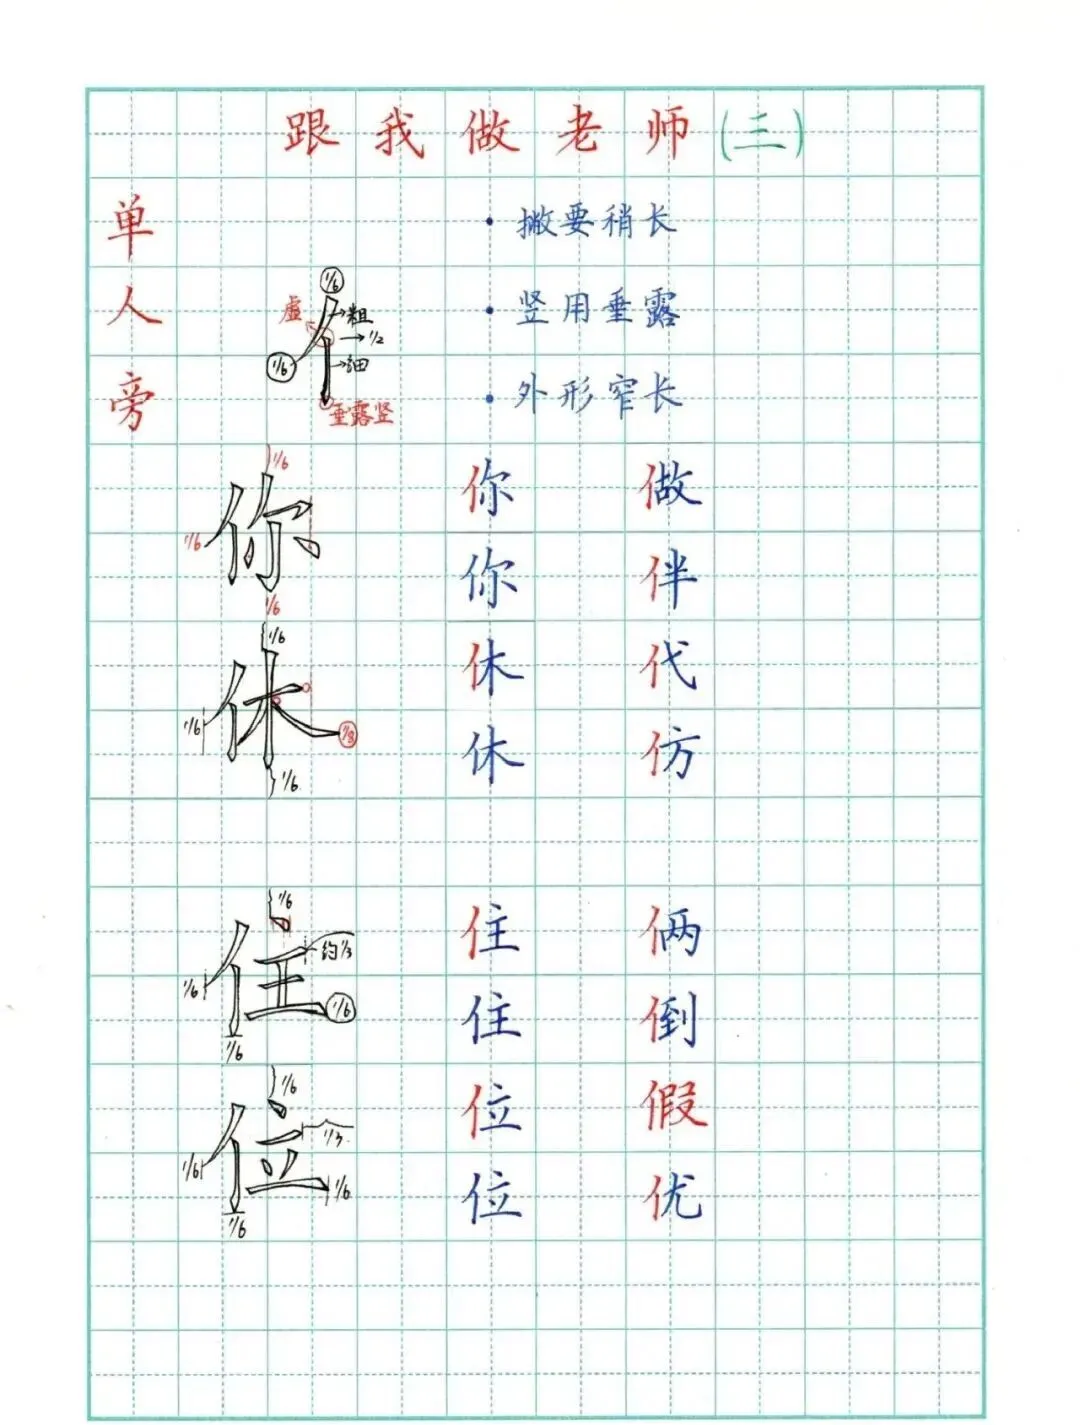 跟我做老师(三)
单人旁
·撇要稍长
·竖用垂露
·外形窄长
1/6
虚
粗
1/2
1/6
细
垂露竖
1/6
你
1/6
1/6
你 做
你 伴
1/6
休
1/6
1/8
1/6
休 代
休 仿
1/6
住
约1/3
1/6
1/6
1/6
住 俩
住 倒
1/6
位
1/3
1/6
1/6
1/6
位 假
位 优